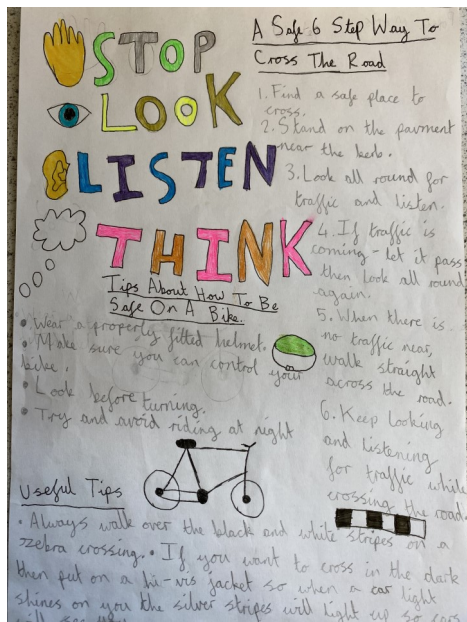 STOP
LOOK
LISTEN
THINK
A Safe 6 Step Way To
Cross The Road
1. Find a safe place to
cross.
2. Stand on the pavment
near the kerb.
3. Look all round for
traffic and listen.
4. If traffic is
coming - let it pass
then look all round
again.
5. When there is
no traffic near,
walk straight
across the road.
6. Keep looking
and listening
for traffic while
crossing the road.
Tips About How To Be
Safe On A Bike.
• Wear a properly fitted helmet.
• Make sure you can control your
bike.
• Look before turning.
• Try and avoid riding at night
Useful Tips
• Always walk over the black and white stripes on a
zebra crossing. • If you want to cross in the dark
then put on a hi-vis jacket so when a car light
shines on you the silver stripes will light up so cars
will see you